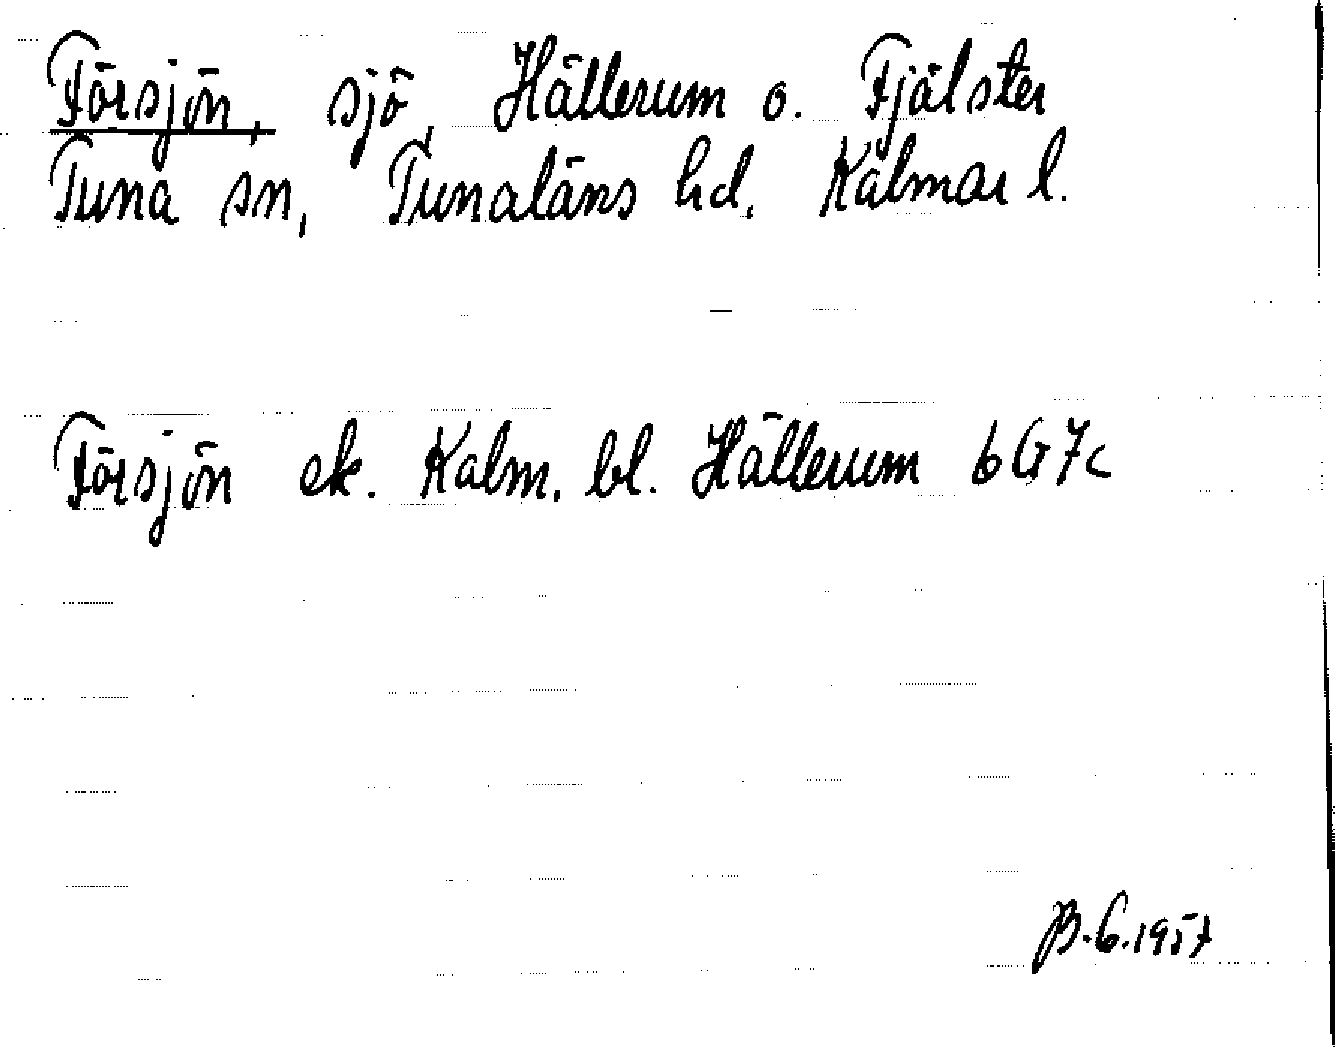 Försjön, sjö, Hällerum o. Fjälster
Tuna sn, Tunaläns hd, Kalmar l.
Försjön ek. Kalm. bl. Hällerum 6G7c
B.G.1957